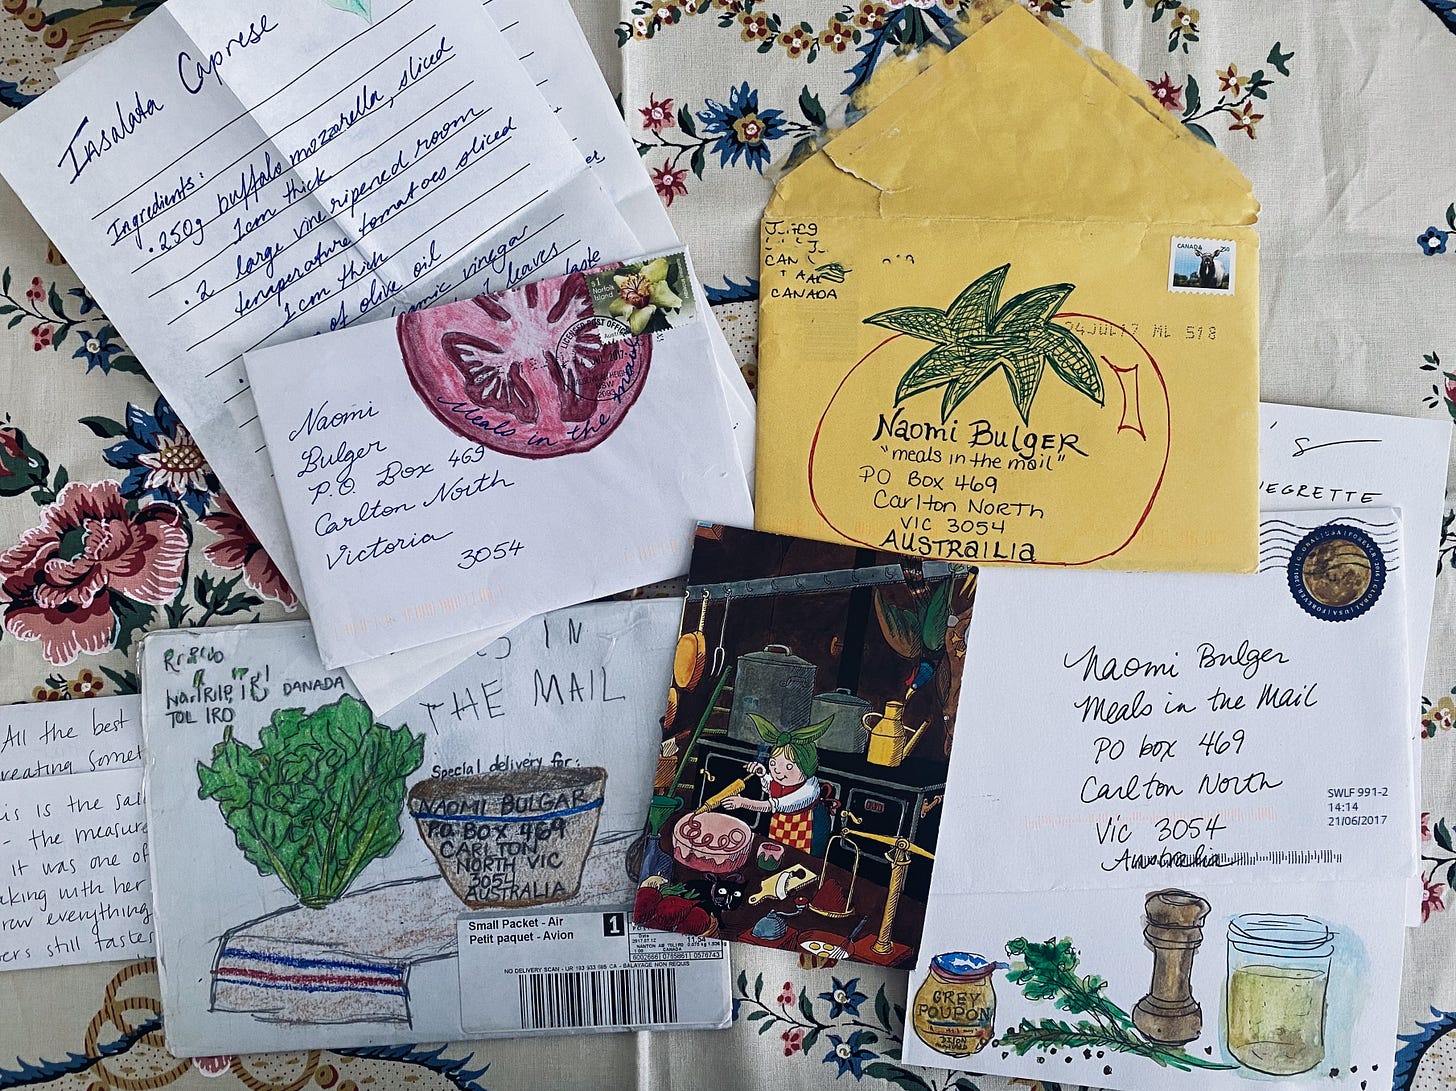 Insalata Caprese
Ingredients:
• 250g buffalo mozzarella, sliced
1cm thick
• 2 large vine ripened room
temperature tomatoes sliced
1cm thick
of olive oil
vinegar
leaves
taste
$1
Norfolk
Island
LICENSED POST OFFICE
Meals in the mail
Naomi
Bulger
P.O. Box 469
Carlton North
Victoria
3054
CANADA
CANADA
250
24JUL17 ML 518
Naomi BULGER
"meals in the mail"
PO BOX 469
Carlton North
VIC 3054
AUSTRAILIA
EGRETTE
GLOBAL | USA | FOREVER | 2016
Naomi Bulger
Meals in the Mail
PO box 469
Carlton North
Vic 3054
Australia
SWLF 991-2
14:14
21/06/2017
GREY
POUPON
DIJON
IN
THE MAIL
DANADA
TOL IRO
Special delivery for:
NAOMI BULGAR
P.O. BOX 469
CARLTON
NORTH VIC
3054
AUSTRALIA
Small Packet - Air
Petit paquet - Avion
1
All the best
reating somet
is is the sal
- the measure
it was one of
aking with her
raw everything
ers still taste